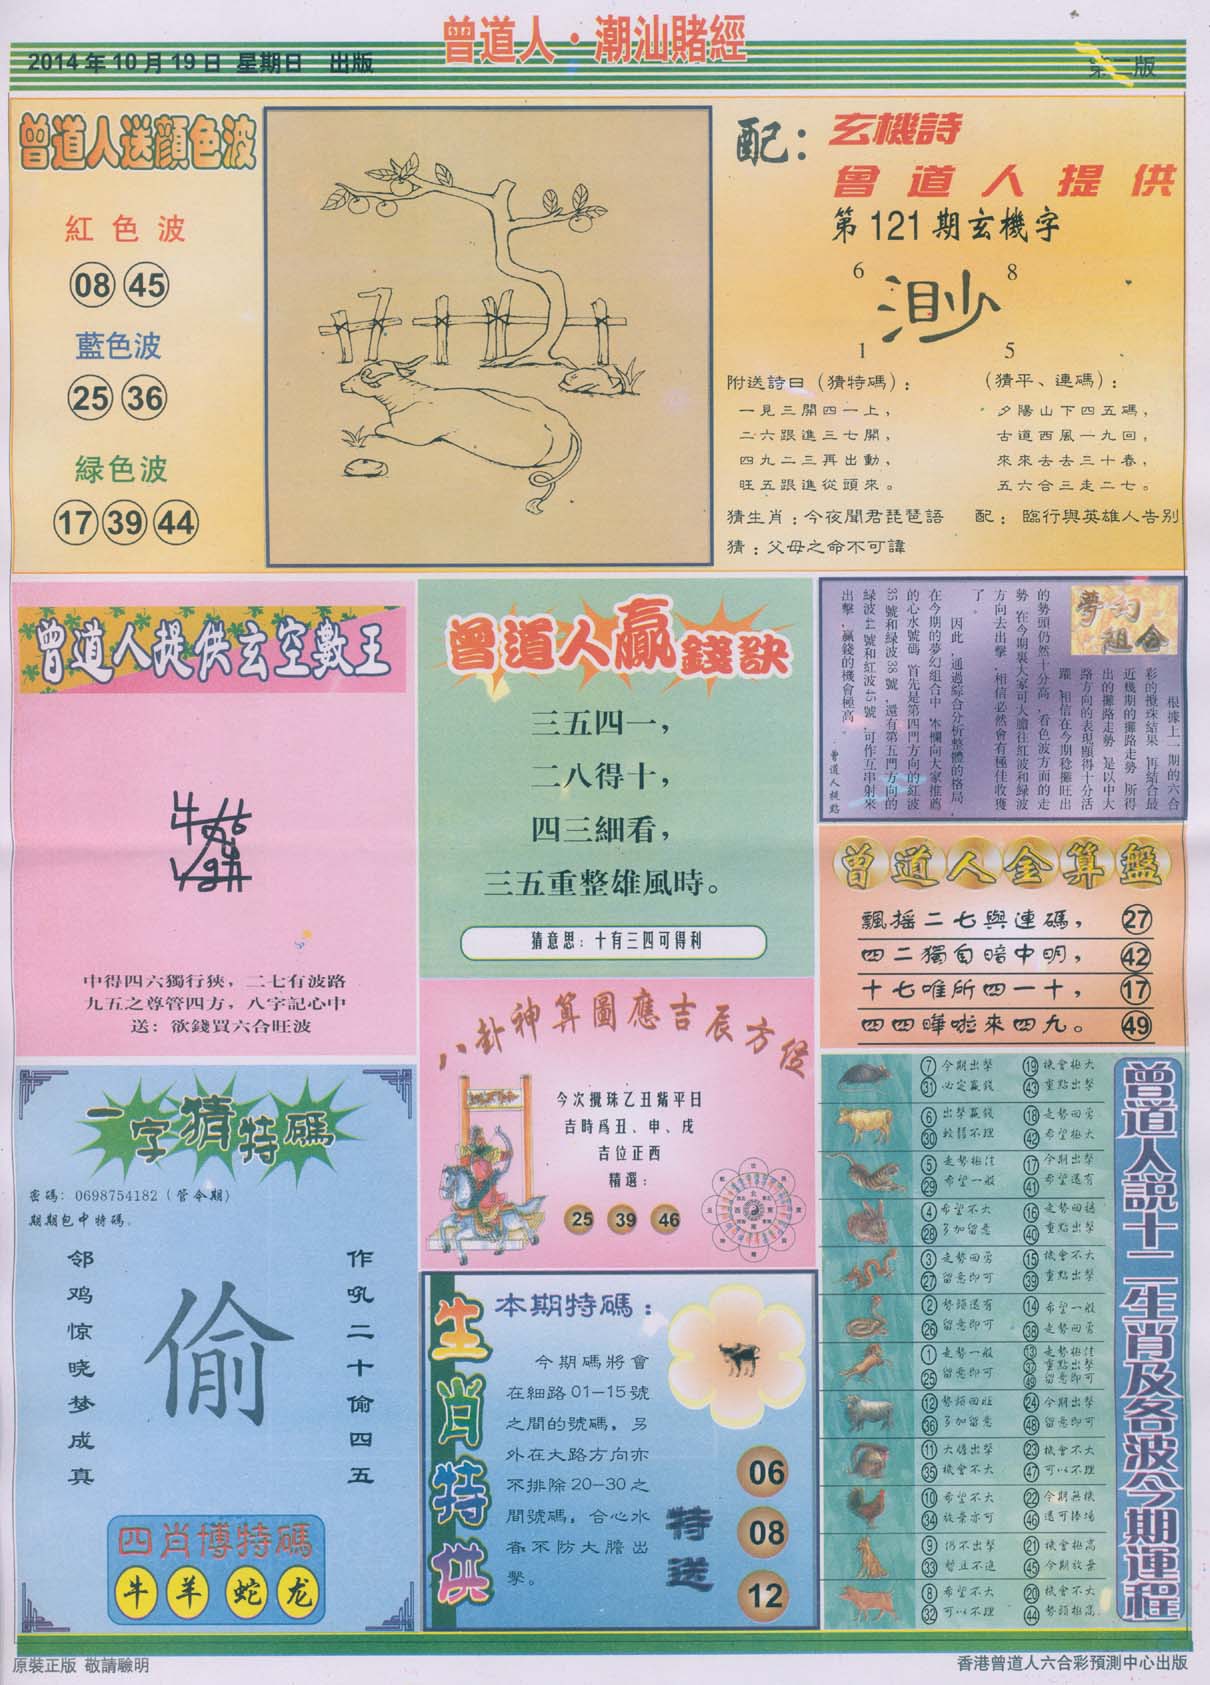 曾道人·潮汕賭經
2014年10月19日 星期日 出版
第二版
曾道人送顔色波
紅色波
08 45
藍色波
25 36
緑色波
17 39 44
配：
玄機詩
曾道人提供
第121期玄機字
6 8
渺
1 5
附送詩曰（猜特碼）：
一見三開四一上，
二六跟進三七開，
四九二三再出動，
旺五跟進從頭來。
（猜平、連碼）：
夕陽山下四五碼，
古道西風一九回，
來來去去三十春，
五六合三走二七。
猜生肖：今夜聞君琵琶語
配： 臨行與英雄人告别
猜：父母之命不可諱
曾道人提供玄空數王
中得四六獨行狹，二七有波路
九五之尊管四方，八字記心中
送：欲錢買六合旺波
曾道人贏錢訣
三五四一，
二八得十，
四三細看，
三五重整雄風時。
猜意思：十有三四可得利
夢幻組合
根據上一期的六合
彩的攪珠結果，再結合最
近幾期的攤路走勢，所得
出的攤路走勢，是以中大
路方向的表現顯得十分活
躍，相信在今期稳攤旺出
的勢頭仍然十分高，看色波方面的走
勢，在今期裏大家可大膽往紅波和緑波
方向去出擊，相信必然會有極佳收獲
了。
因此，通過綜合分析整體的格局，
在今期的夢幻組合中，本欄向大家推薦
的心水號碼，首先是第四門方向的紅波
35號和緑波38號，還有第五門方向的
緑波44號和紅波45號，可作互串射來
出擊，贏錢的機會極高。
曾道人提點
曾道人金算盤
飄摇二七與連碼， 27
四二獨自暗中明， 42
十七唯所四一十， 17
四四嘩啦來四九。 49
八卦神算圖應吉辰方位
今次攪珠乙丑紫平日
吉時爲丑、申、戌
吉位正西
精選：
25 39 46
一字猜特碼
密碼：0698754182（管令期）
期期包中特碼。
邻鸡惊晓梦成真
偷
作吼二十偷四五
四肖博特碼
牛 羊 蛇 龙
生肖特供
本期特碼：
今期碼將會
在細路01-15號
之間的號碼，另
外在大路方向亦
不排除20-30之
間號碼，合心水
者不防大膽出
擊。
特送
06
08
12
曾道人説十二生肖及各波今期運程
7 今期出擊 19 機會極大
31 必定贏錢 43 重點出擊
6 出擊贏錢 18 走勢回勇
30 較弱不理 42 希望極大
5 走勢極佳 17 今期出擊
29 希望一般 41 希望還有
4 希望不大 16 走勢回穩
28 多加留意 40 重點出擊
3 走勢回勇 15 機會不大
27 留意即可 39 重點出擊
2 勢頭還有 14 希望一般
26 留意即可 38 走勢回勇
1 走勢一般 13 走勢極佳
37 重點出擊
25 留意即可 49 留意即可
12 勢頭回旺 24 今期出擊
36 多加留意 48 留意即可
11 大膽出擊 23 機會不大
35 機會不大 47 可以不理
10 希望不大 22 今期無機
34 放棄亦可 46 還可捧場
9 仍不出擊 21 機會極高
33 暫且不追 45 今期放棄
8 希望不大 20 機會不大
32 可以不理 44 勢頭極高
原裝正版 敬請驗明
香港曾道人六合彩預測中心出版